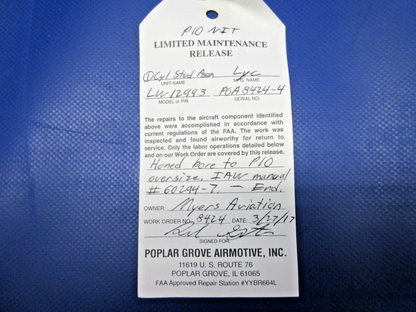 P10 NIT
LIMITED MAINTENANCE
RELEASE
① Cyl Stud Assn Lyc
UNIT NAME MFG. NAME
LW12993 PGA8424-4
MODEL or P/N SERIAL NO.
The repairs to the aircraft component identified
above were accomplished in accordance with
current regulations of the FAA. The work was
inspected and found airworthy for return to
service. Only the labor operations detailed below
and on our Work Order are covered by this release.
Honed Bore to P10
oversize. IAW manual
# 60294-7. — End.
OWNER: Myers Aviation
WORK ORDER NO. 8424 DATE: 3/27/17
SIGNED FOR:
POPLAR GROVE AIRMOTIVE, INC.
11619 U. S. ROUTE 76
POPLAR GROVE, IL 61065
FAA Approved Repair Station #YYBR664L